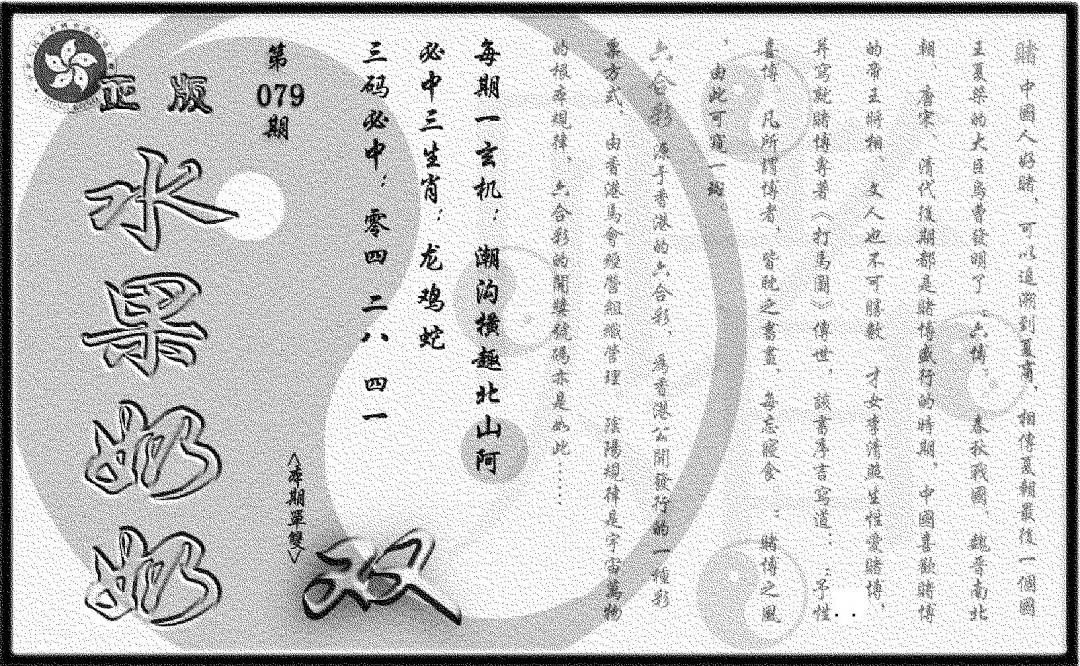 賭 中國人好賭，可以追溯到夏商，相傳夏朝最後一個國
王夏桀的大臣烏曹發明了“六博。 春秋戰國、魏晉南北
朝、唐宋、清代後期都是賭博盛行的時期，中國喜歡賭博
的帝王將相 文人也不可勝數 才女李清照生性愛賭博，
并寫就賭博專著《打馬圖》傳世，該書序言寫道：：予性
喜博 凡所謂博者，皆耽之晝夜，每忘寢食 ：賭博之風
，由此可窺一斑。
六合彩 源于香港的六合彩，為香港公開發行的一種彩
票方式，由香港馬會經營組織管理 陰陽規律是宇宙萬物
的根本規律，六合彩的開獎號碼亦是如此……
每期一玄机：潮沟横趣北山阿
必中三生肖：龙鸡蛇
三码必中：零四 二八 四一
第079期
正版
水果奶奶
<本期單雙>
双